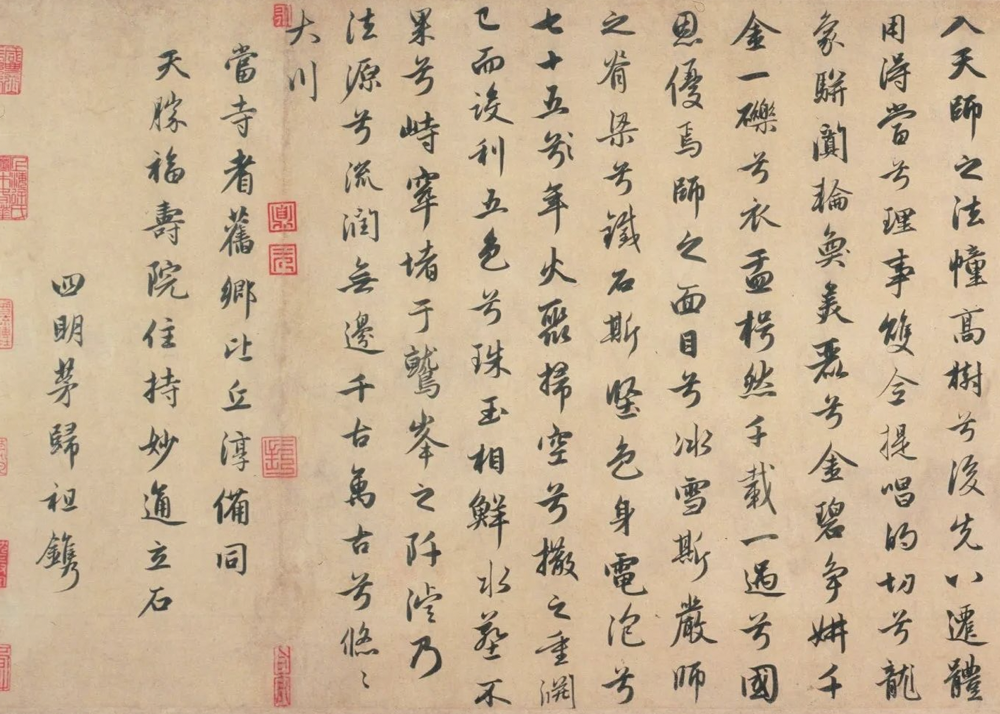 入天師之法幢高樹兮後先八遷體
用得當兮理事雙全提唱的切兮龍
象駢闐輪奐美麗兮金碧爭妍千
金一礫兮衣盂枵然千載一遇兮國
恩優焉師之面目兮冰雪斯嚴師
之脊梁兮鐵石斯堅色身電泡兮
七十五年火聚掃空兮撒之重淵
已而設利五色兮珠玉相鮮水葬不
果兮峙窣堵于鷲峯之阡乃
法源兮流潤無邊千古萬古兮悠〻
大川
當寺耆舊鄉比丘淳備同
天勝福壽院住持妙通立石
四明茅歸祖鐫